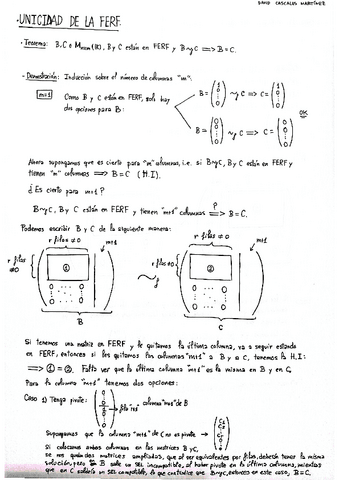 DAVID CASCALES MARTÍNEZ
·UNICIDAD DE LA FERF.
·Teorema: B, C ∈ Mnxm(K), B y C están en FERF y B~fC => B = C.
·Demostración: Inducción sobre el número de columnas "m":
m=1 Como B y C están en FERF, solo hay
dos opciones para B:
B = (1 0 ⋮ 0) ~f C => C = (1 0 ⋮ 0)
OK
B = (0 0 ⋮ 0) ~f C => C = (0 0 ⋮ 0)
Ahora supongamos que es cierto para "m" columnas, i.e. si B~fC, B y C están en FERF y
tienen "m" columnas => B = C (H.I.)
¿Es cierto para m+1?
B~fC, B y C están en FERF y tienen "m+1" columnas =>? B = C.
Podemos escribir B y C de la siguiente manera:
r filas ≠0 m+1 r filas ≠0 m+1
r filas ≠0 ① ~f r filas ≠0 ②
0 ... 0 0 ... 0
B C
Si tenemos una matriz en FERF y le quitamos la última columna, va a seguir estando
en FERF, entonces si les quitamos las columnas "m+1" a B y a C, tenemos la H.I:
=> ① = ②. Falta ver que la última columna "m+1" es la misma en B y en C.
Para la columna "m+1" tenemos dos opciones:
Caso 1) Tenga pivote: (0 0 ⋮ 1 0 ⋮ 0) → fila "r+1" columna "m+1" de B
Supongamos que la columna "m+1" de C no es pivote →
Si colocamos ambas columnas en las matrices B y C,
se nos quedan matrices ampliadas, que al ser equivalentes por filas, deberán tener la misma
solución, pero B sale un SI incompatible, al haber pivote en la última columna, mientras
que en C saldría un SEL compatible, lo que contradice que B~fC, entonces en este caso, B = C.